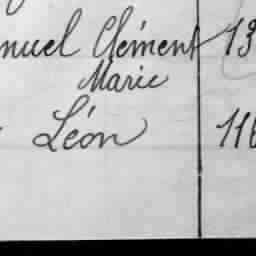 nuel Clément 13
Marie
Léon 116